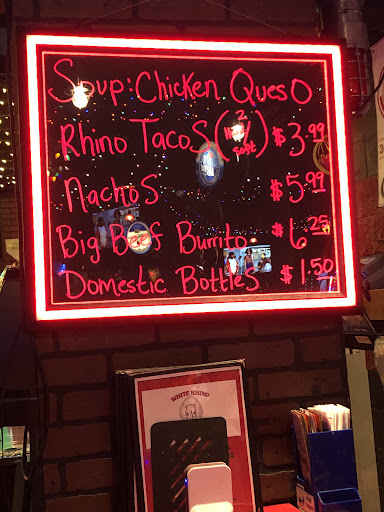 Soup: Chicken Queso
Rhino Tacos (2 soft) $3.99
Nachos $5.99
Big Beef Burrito $6.25
Domestic Bottles $1.50
WHITE RHINO